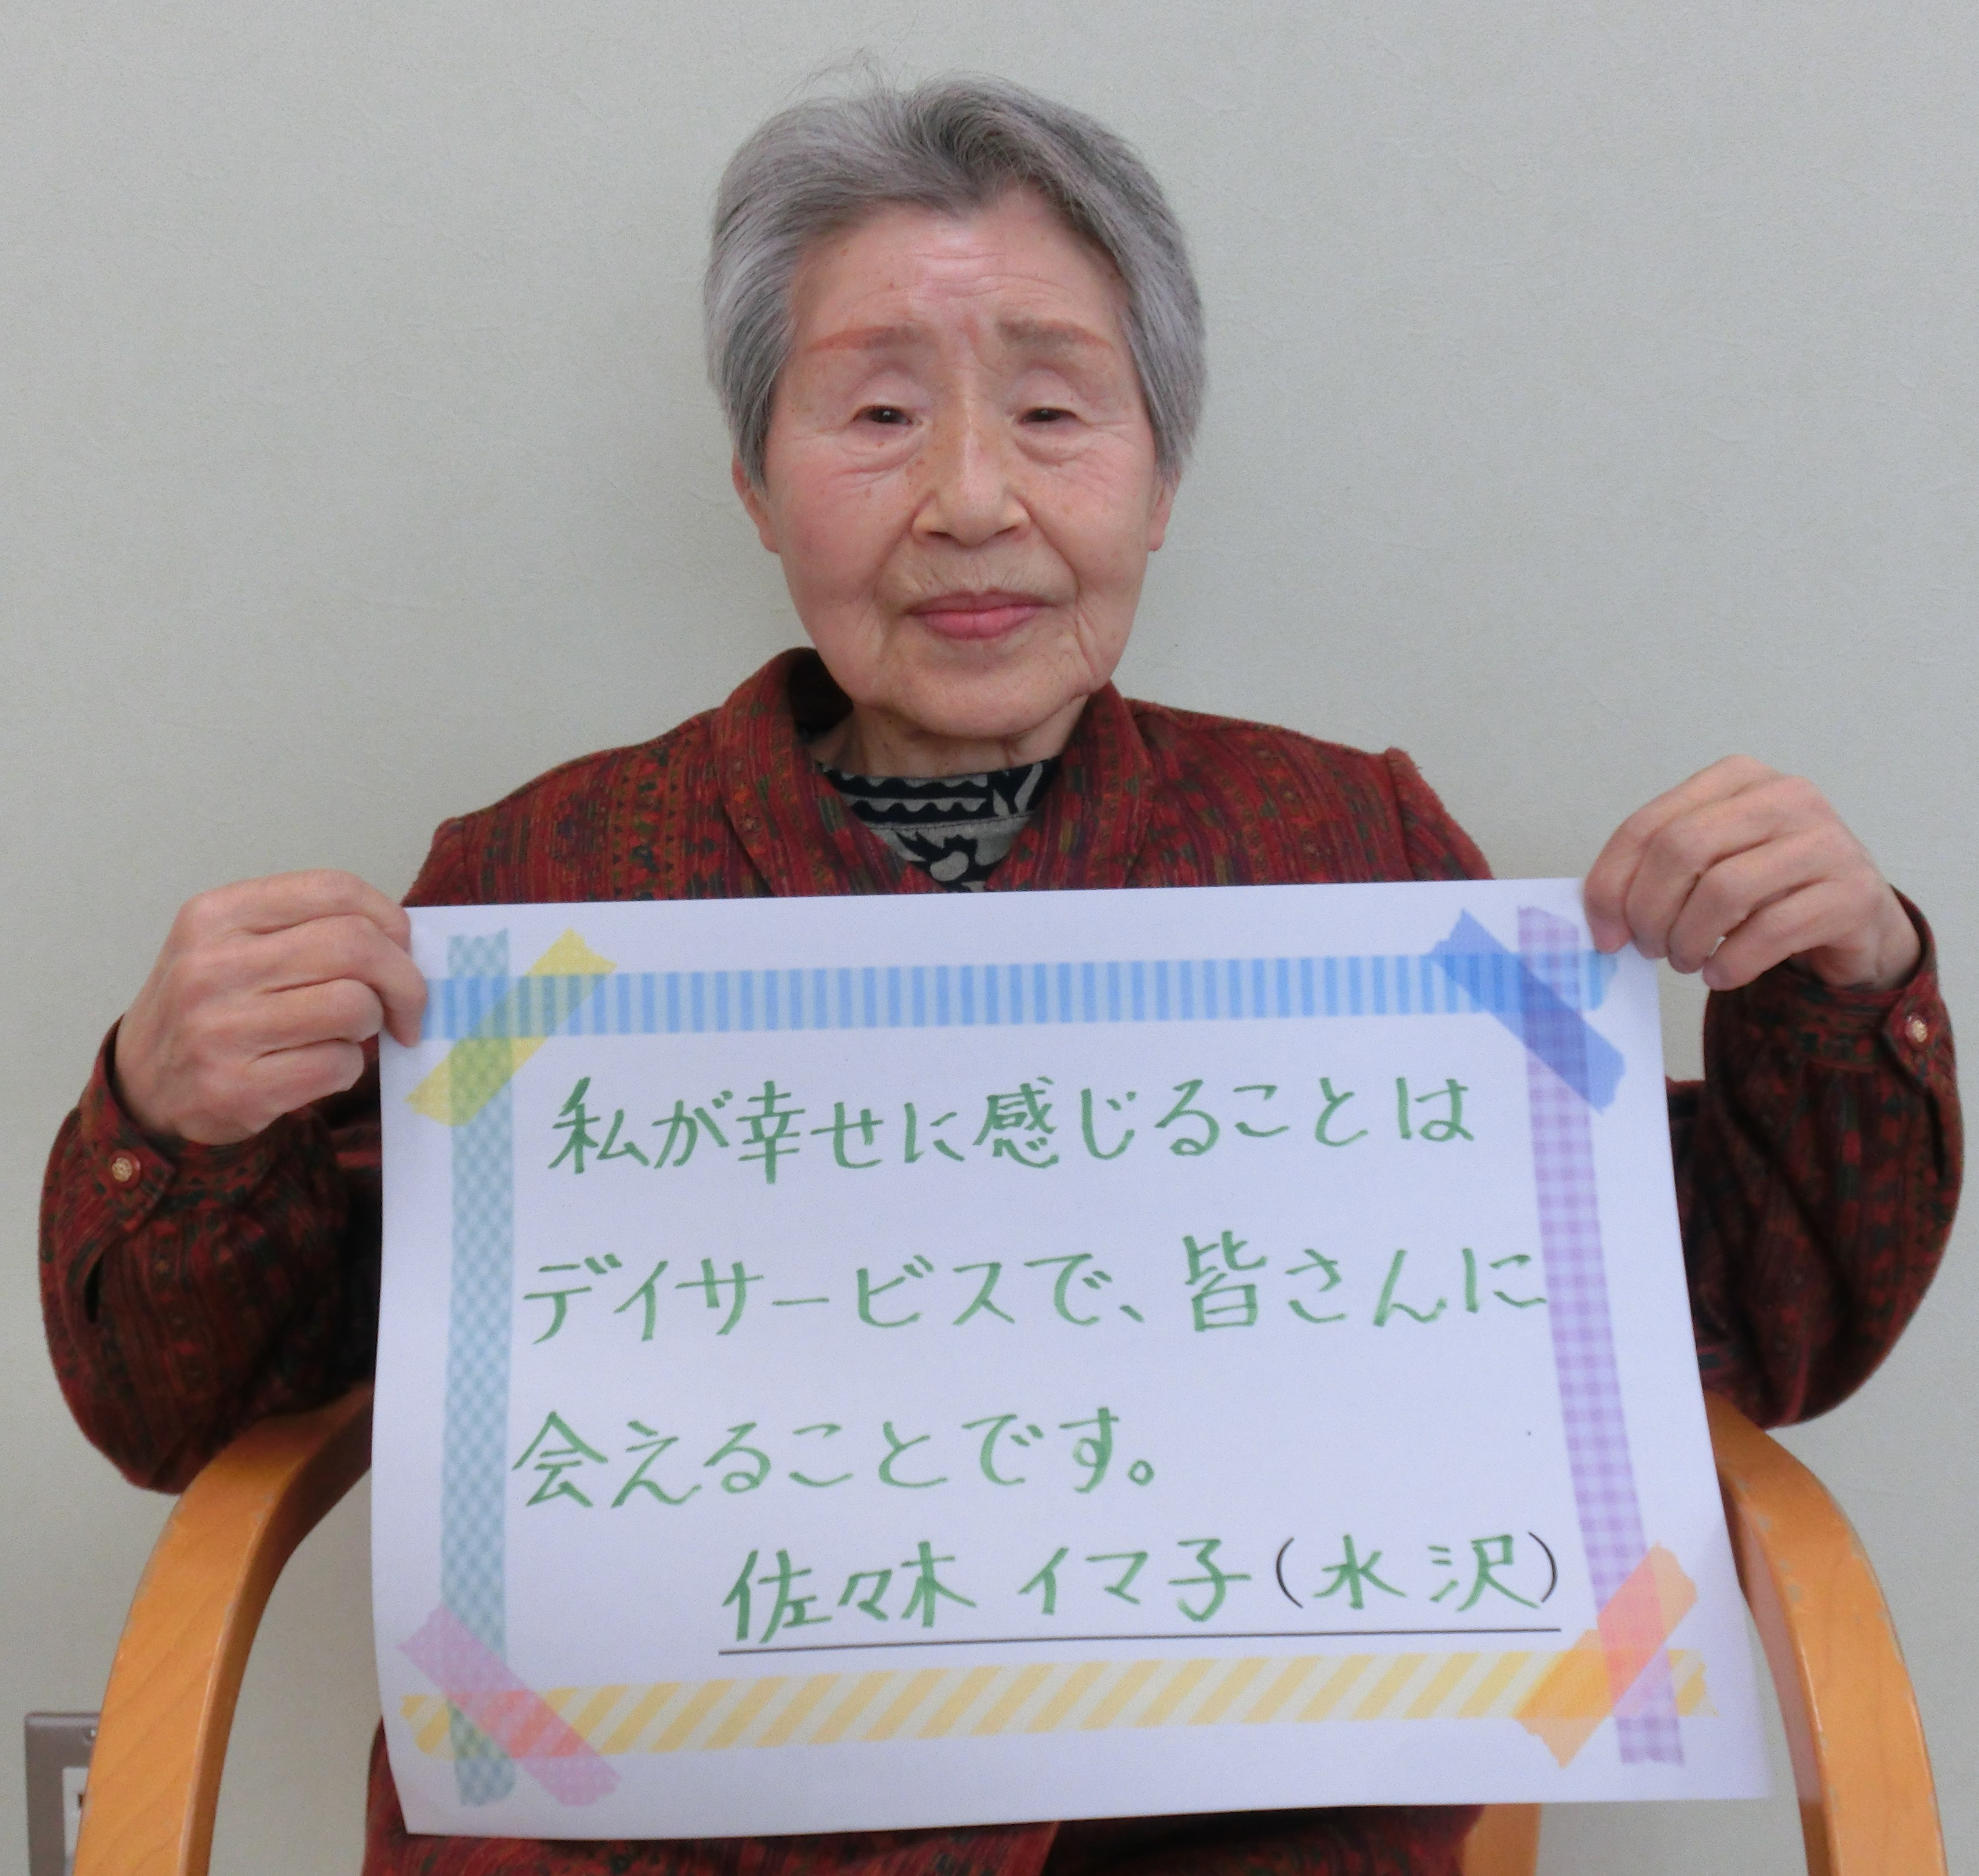 私が幸せに感じることは
デイサービスで、皆さんに
会えることです。
佐々木 イマ子(水沢)